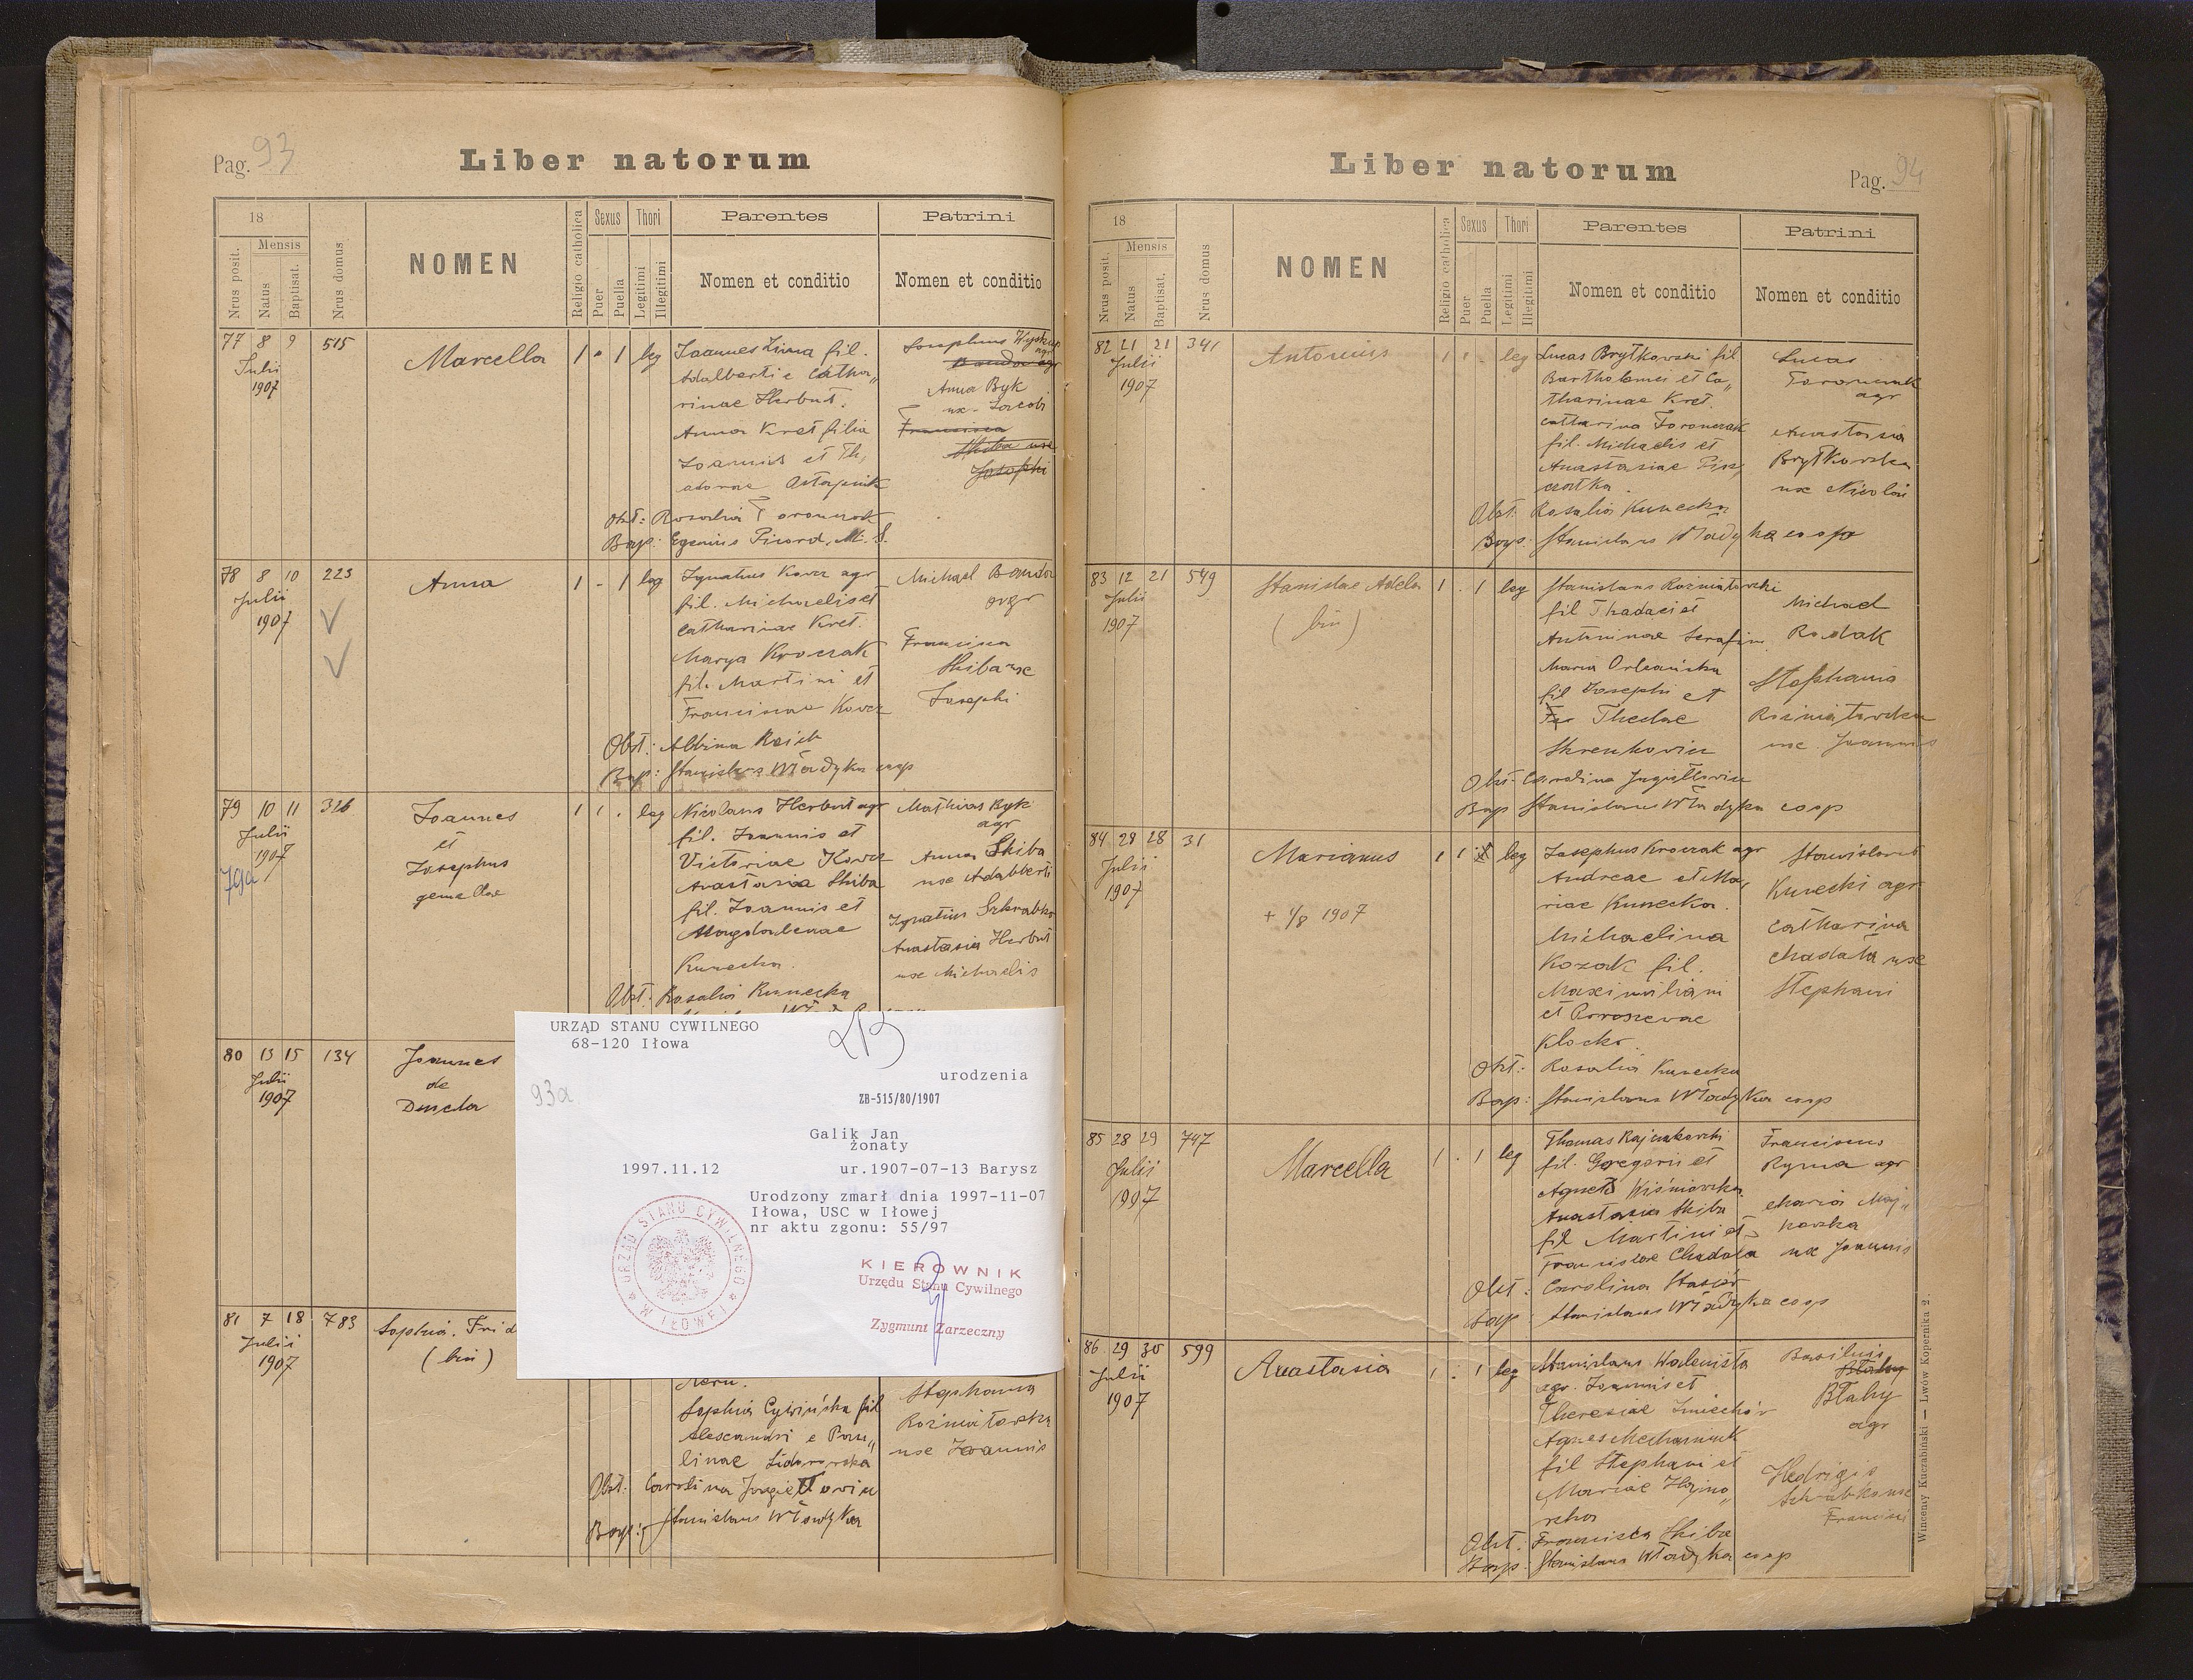 Pag. 93
Liber natorum
18
Mensis
Nrus posit.
Natus
Baptisat.
Nrus domus
NOMEN
Religio catholica
Sexus
Puer
Puella
Thori
Legitimi
Illegitimi
Parentes
Nomen et conditio
Patrini
Nomen et conditio
77 8 9 515
Julii
1907
Marcella
1 - 1 leg
Joannes Zima fil.
Adalberti e Catha„
rinae Herbut.
Anna Kret filia
Joannis et Th,
Josephus
agr
Anna Byk
ux. Jacobi
Francisca
Skiba uxe
Josephi
Obst: Rosalia Toronczak
Bap:
78 8 10 223
Julii
1907
Anna
1 - 1 leg
Ignatius Kowcz agr
fil. Michaelis et
Catharinae Kret.
Marya Kroczak
fil. Martini et
Franciscae Kowcz
Michael Bandor
agr
Francisca
Skiba uxe
Josephi
Obst: Albina Reich
Bap: Stanislaus Władyka coop
79 10 11 316
Julii
1907
79a
Joannes
et
Josephus
gemellae
1 1 . leg
Nicolaus Herbut agr
fil. Joannis et
Victoriae Kowcz
Anastasia Skiba
fil. Joannis et
Magdalenae
Kunecka.
Mathias Byk
agr
Anna Skiba
uxe Adalberti
Ignatius Szkrabko
Anastasia Herbut
uxe Michaelis
Obst: Rosalia Kunecka
80 13 15 134
Julii
1907
Joannes
de
Duncla
URZĄD STANU CYWILNEGO
68-120 Iłowa
93a
urodzenia
ZB-515/80/1907
Galik Jan
żonaty
1997.11.12
ur.1907-07-13 Barysz
Urodzony zmarł dnia 1997-11-07
Iłowa, USC w Iłowej
nr aktu zgonu: 55/97
URZĄD STANU CYWILNEGO
* W IŁOWEJ *
KIEROWNIK
Urzędu Stanu Cywilnego
Zygmunt Zarzeczny
81 7 18 783
Julii
1907
Sophia. Frid
(bin)
Sophia Cywińska fil
Alexandri e Pau„
linae Sidorowska
Stephania
Rozniatowska
uxe Joannis
Obst: Carolina Jagiełłowicz
Bap: Stanislaus Władyka
Liber natorum
Pag. 94
18
Mensis
Nrus posit.
Natus
Baptisat.
Nrus domus
NOMEN
Religio catholica
Sexus
Puer
Puella
Thori
Legitimi
Illegitimi
Parentes
Nomen et conditio
Patrini
Nomen et conditio
82 21 21 341
Julii
1907
Antonius
1 1 - leg
Lucas Brytkowski fil
Bartholomei et Ca„
tharinae Kret.
Catharina Toronczak
fil. Michaelis et
Anastasiae
Lucas
Toronczak
agr
Anastasia
Brytkowska
uxe Nicolai
Obst: Rosalia Kunecka
Bap: Stanislaus Władyka coop
83 12 21 549
Julii
1907
Stanislae Adela
(bin)
1 . 1 leg
Stanislaus Rozniatowski
fil Thadaei et
Antoninae Serafin
Maria Orleańska
fil Josephi et
Theclae
Skrenkowicz
Michael
Rudak
Stephania
Rozniatowska
uxe. Joannis
Obst. Carolina Jagiełłowicz
Bap Stanislaus Władyka coop
84 28 28 31
Julii
1907
Marianus
+ 1/8 1907
1 1 leg
Josephus Kroczak agr
Andreae et Ma,
riae Kunecka.
Michaelina
Kozak fil.
Maximiliani
et
Klocko.
Stanislaus
Kunecki agr
Catharina
Chadała uxe
Stephani
Obst: Rosalia Kunecka
Bap: Stanislaus Władyka coop
85 28 29 747
Julii
1907
Marcella
1 . 1 leg
Thomas Rajnakowski
fil. Gregorii et
Agnetis Wiśniowska
Anastasia Skiba
fil Martini et
Franciscae Chadała
Franciscus
Ryma agr
Maria Maj„
kowska
uxe Joannis
Obst: Carolina Stasiów
Bap: Stanislaus Władyka coop
86 29 30 599
Julii
1907
Anastasia
1 . 1 leg
Stanislaus Walenista
agr. Joannis et
Theresiae
Agnes
fil Stephani et
Mariae
Basilius
Błahy
agr
Hedvigis
Szkrabko uxe
Francisci
Obst: Francisca Skiba
Bap: Stanislaus Władyka coop
Wincenty Kuczabiński — Lwów Kopernika 2.